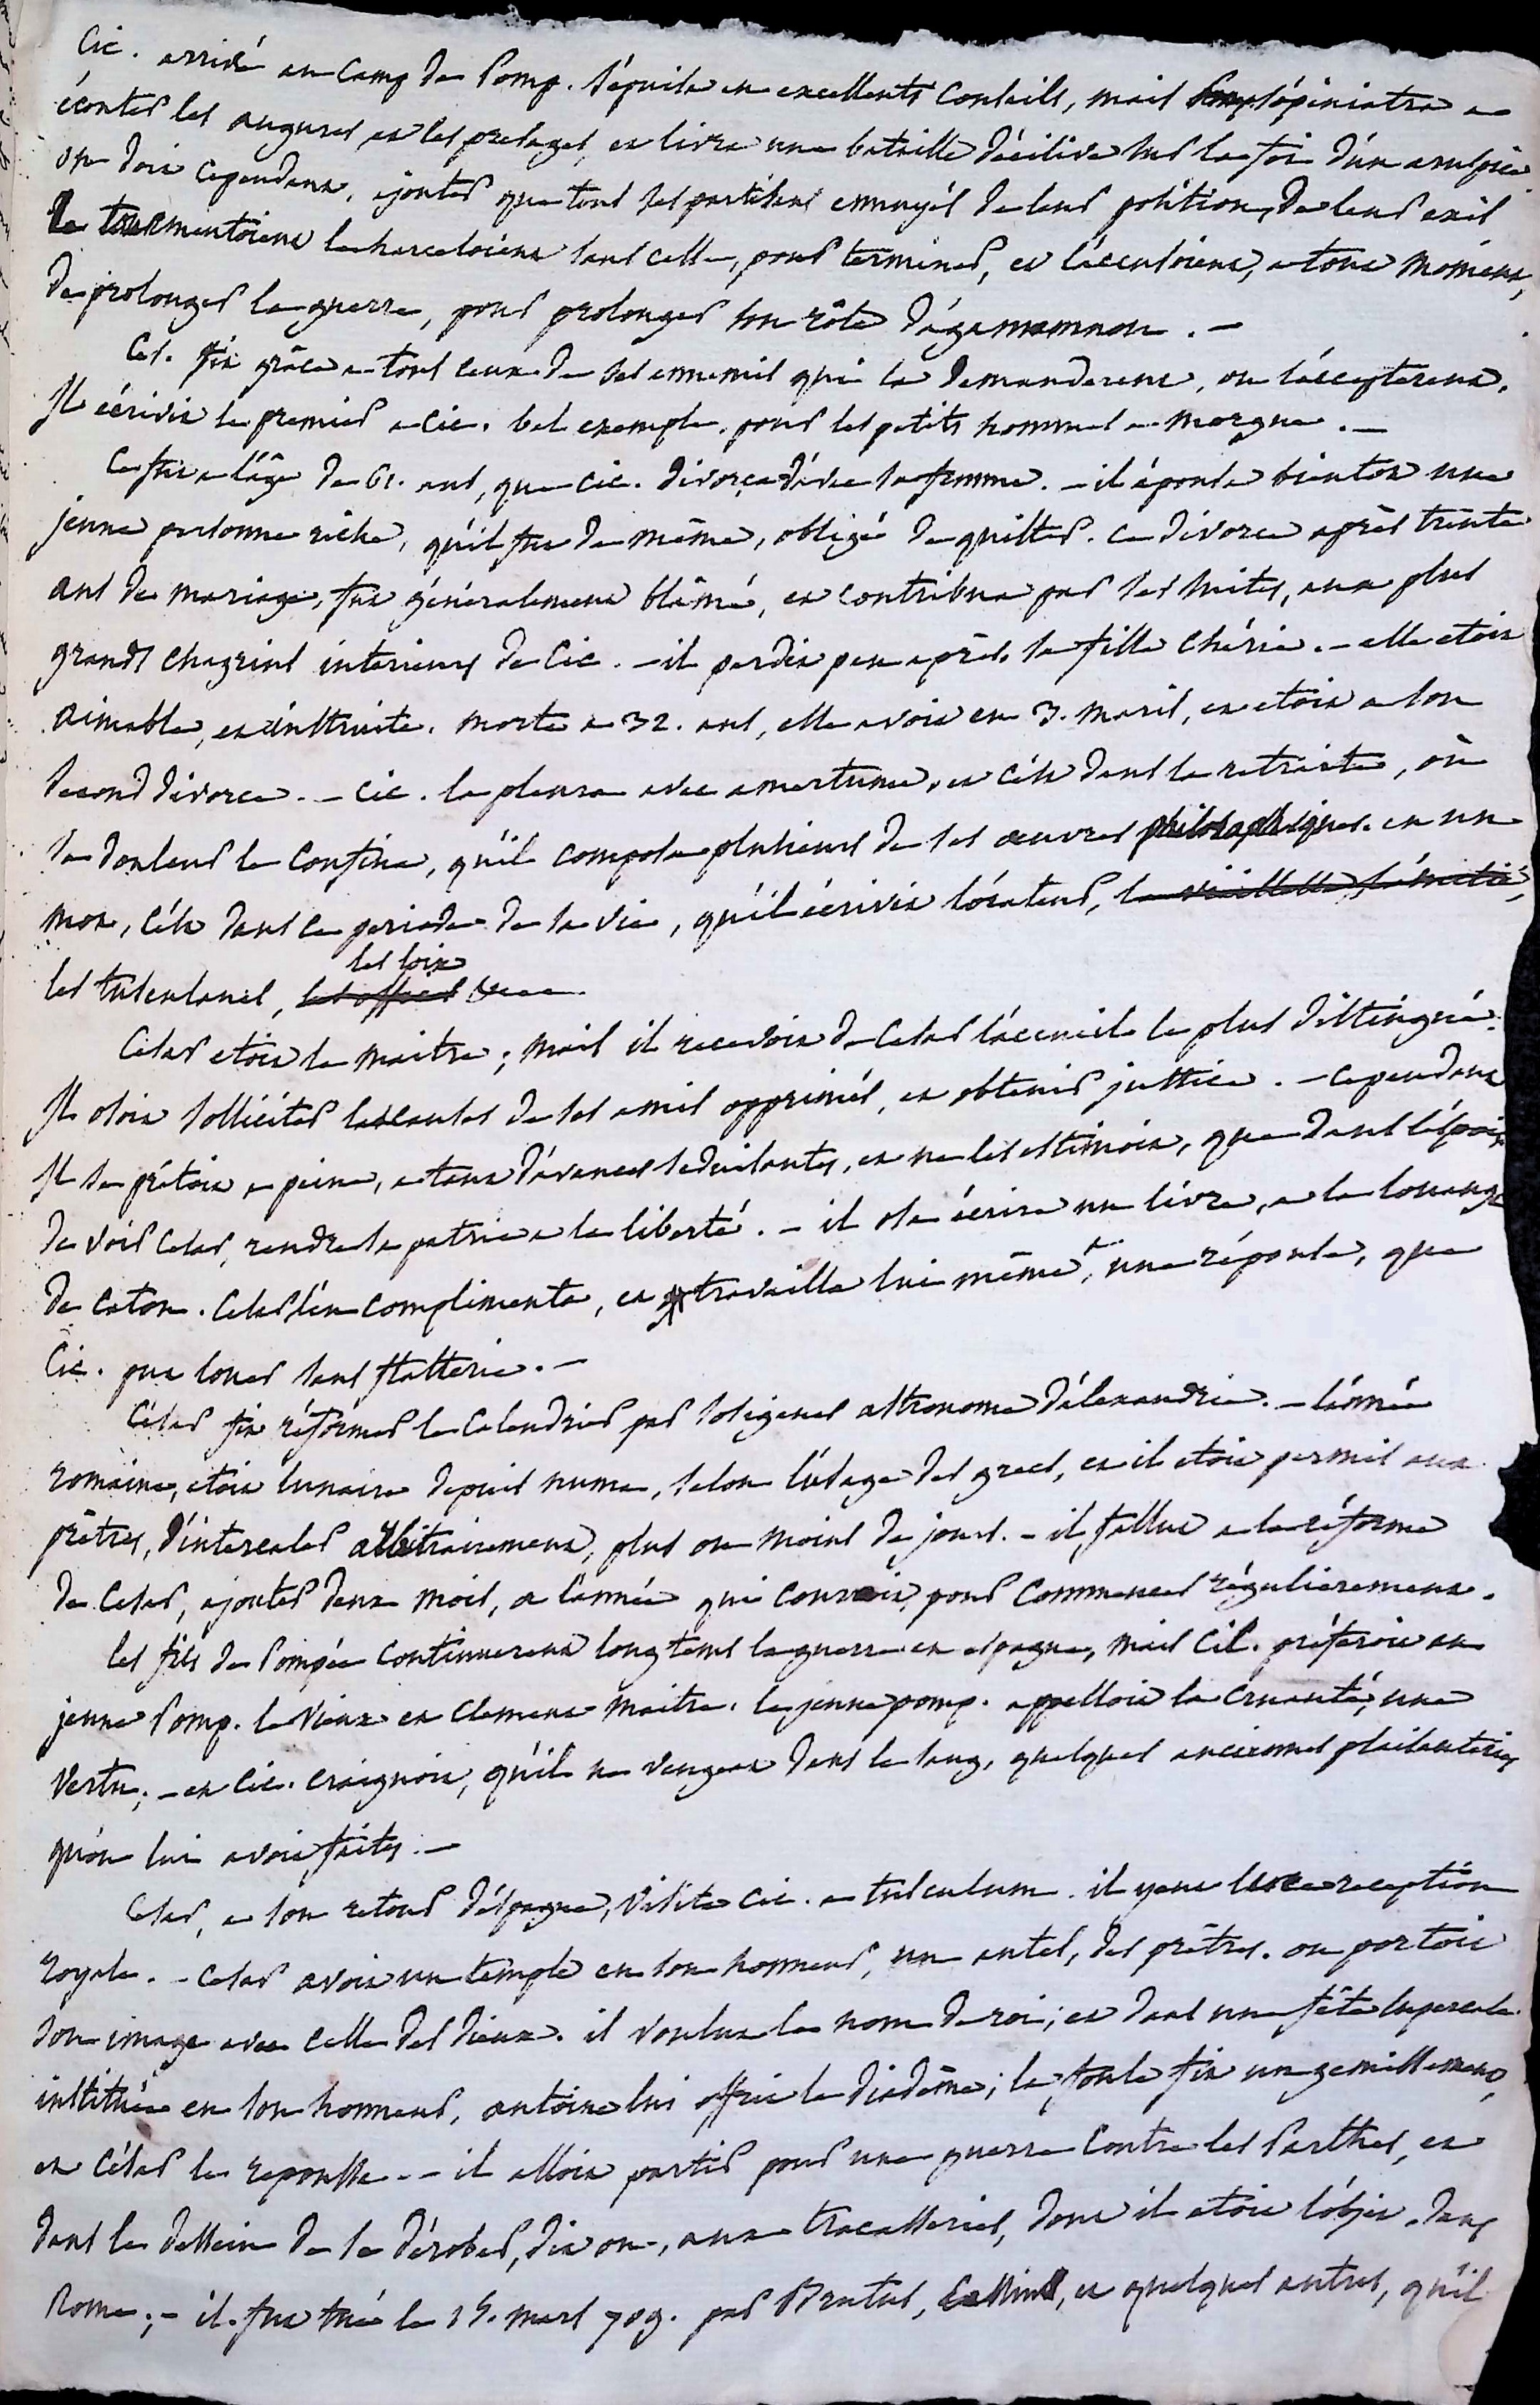 Cic. arrivé au camp de Pomp. s'épuise en excellents conseils, mais Pomp s'opiniatra a
écouter les augures, et les presages, et livra une bataille décisive sur la foi d'un aruspice.
on doit cependant, ajouter que tous ses partisans ennuyés de leur position, de leur exil
le tourmentoient le harceloient sans cesse, pour terminer, et l'accusoient, a tout moment,
de prolonger la guerre, pour prolonger son rôle d'agamemnon. —
Ces. fit grâce a tous ceux de ses ennemis qui la demanderent, ou l'accepterent.
Il écrivit le premier a Cic. bel exemple, pour les petits hommes a morgue. —
Ce fut a l'âge de 61. ans, que Cic. divorça d'avec sa femme. — il épousa bientôt une
jeune personne riche, qu'il fut de même, obligé de quitter. ce divorce après trente
ans de mariage, fut généralement blâmé, et contribua par ses suites, aux plus
grands chagrins interieurs de Cic. — il perdit peu après, sa fille chérie. — elle etoit
aimable, et instruite. morte a 32. ans, elle avoit eu 3. maris, et etoit a son
second divorce. — Cic. la pleura avec amertume, et c'est dans la retraite, où
sa douleur le confina, qu'il composa plusieurs de ses œuvres philosophiques. en un
mot, c'est dans ce periode de sa vie, qu'il écrivit l'orateur, la vieillesse, l'amitié,
les loix
les tusculanes, les offices &c.
Cesar etoit le maitre; mais il recevoit de Cesar l'accueil le plus distingué.
Il osoit solliciter les causes de ses amis opprimés, et obtenir justice. — cependant
Il se prétoit a peine, a tant d'avances seduisantes, et ne les estimoit, que dans l'espoir
de voir Cesar, rendre la patrie a la liberté. — il osa écrire un livre, a la louange
de caton. Cesar l'en complimenta, et travailla lui même a une réponse, que
Cic. put louer sans flatterie. —
César fit réformer le Calendrier par Sosigenes astronome d'alexandrie. — l'année
romaine, etoit lunaire depuis numa, selon l'usage des grecs, et il etoit permis aux
prêtres, d'intercaler arbitrairement, plus ou moins de jours. — il fallut a la réforme
de Cesar, ajouter deux mois, a l'année qui couroit, pour commencer régulierement.
les fils de Pompée continuerent long tems la guerre en espagne, mais Cic. préferoit au
jeune Pomp. le vieux et clement maitre. le jeune pomp. appelloit la cruauté, une
vertu; — et Cic. craignoit, qu'il ne vengeat dans le sang, quelques anciennes plaisanteries
qu'on lui avoit faites. —
Cesar, a son retour d'espagne, visita Cic. a tusculum. il y eut une reception
royale. — Cesar avoit un temple en son honneur, un autel, des prêtres. on portoit
son image avec celle des dieux. il voulut le nom de roi; et dans une fête lupercale
instituée en son honneur, antoine lui offrit le diadême; la foule fit un gemissement,
et César le repoussa. — il alloit partir pour une guerre contre les Parthes, et
dans le dessein de se dérober, dit on, aux tracasseries, dont il etoit l'objet dans
Rome; — il fut tué le 15. mars 709. par Brutus, Cassius, et quelques autres, qu'il